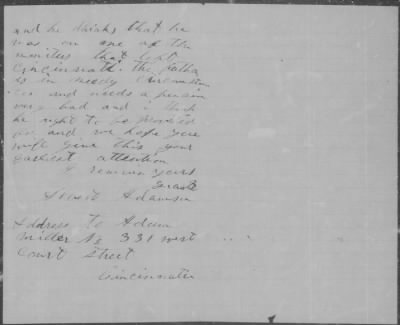 and he thinks that he
was on one of the
moniters that left
Cincinnati. the father
is in needy circumstan
ces and needs a pension
very bad and i think
he right to be provided
for and we hope you
will give this your
earliest attention
I remain yours
Adamson
Address to Adam
Miller No 331 west
Court Street
Cincinnati